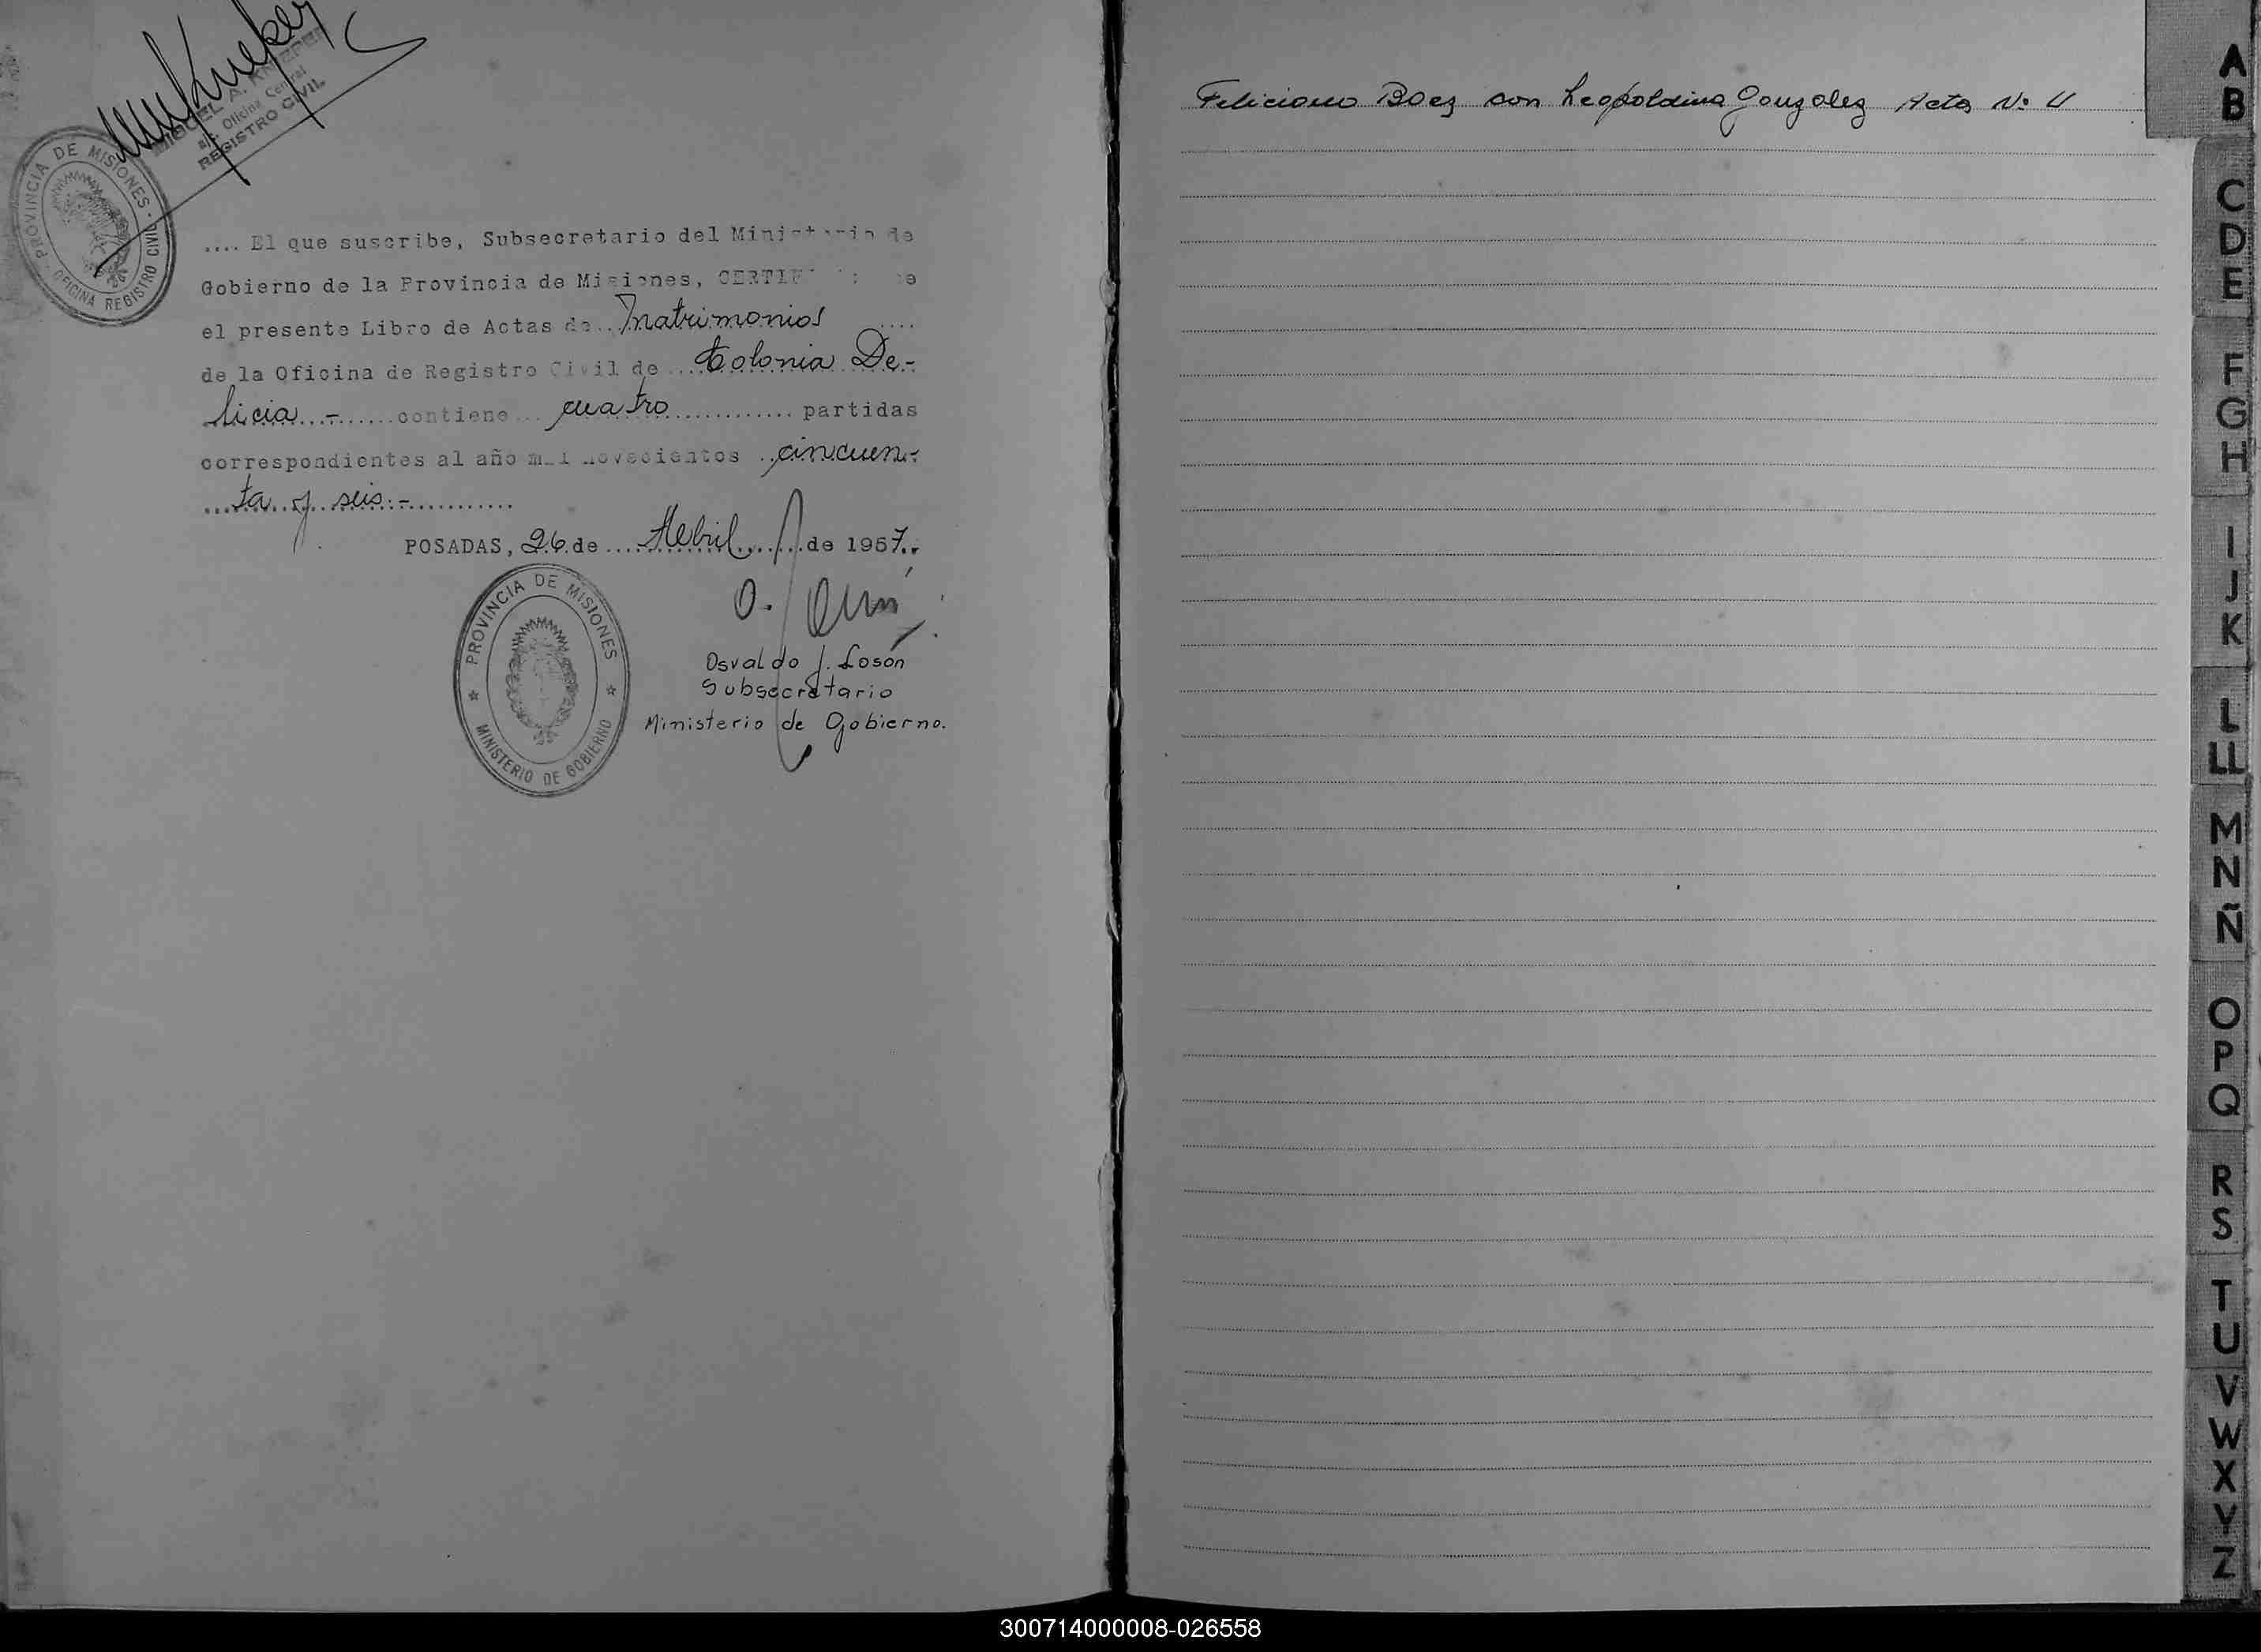 MIGUEL A. KNIEPER
a/c. Oficina Central
REGISTRO CIVIL
PROVINCIA DE MISIONES · OFICINA REGISTRO CIVIL
.... El que suscribe, Subsecretario del Ministerio de
Gobierno de la Provincia de Misiones,
el presente Libro de Actas de.. Matrimonios ....
de la Oficina de Registro Civil de ... Colonia De-
licia.-......contiene... cuatro............ partidas
correspondientes al año mil novecientos ..cincuen-
...ta y seis.-............
POSADAS, 26 de .... Abril ...... de 1957..
PROVINCIA DE MISIONES
MINISTERIO DE GOBIERNO
Osvaldo J. Loson
Subsecretario
Ministerio de Gobierno.
Feliciano Baez con Leopoldina Gonzalez Acta Nº
A
B
C
D
E
F
G
H
I
J
K
L
LL
M
N
Ñ
O
P
Q
R
S
T
U
V
W
X
Y
Z
300714000008-026558